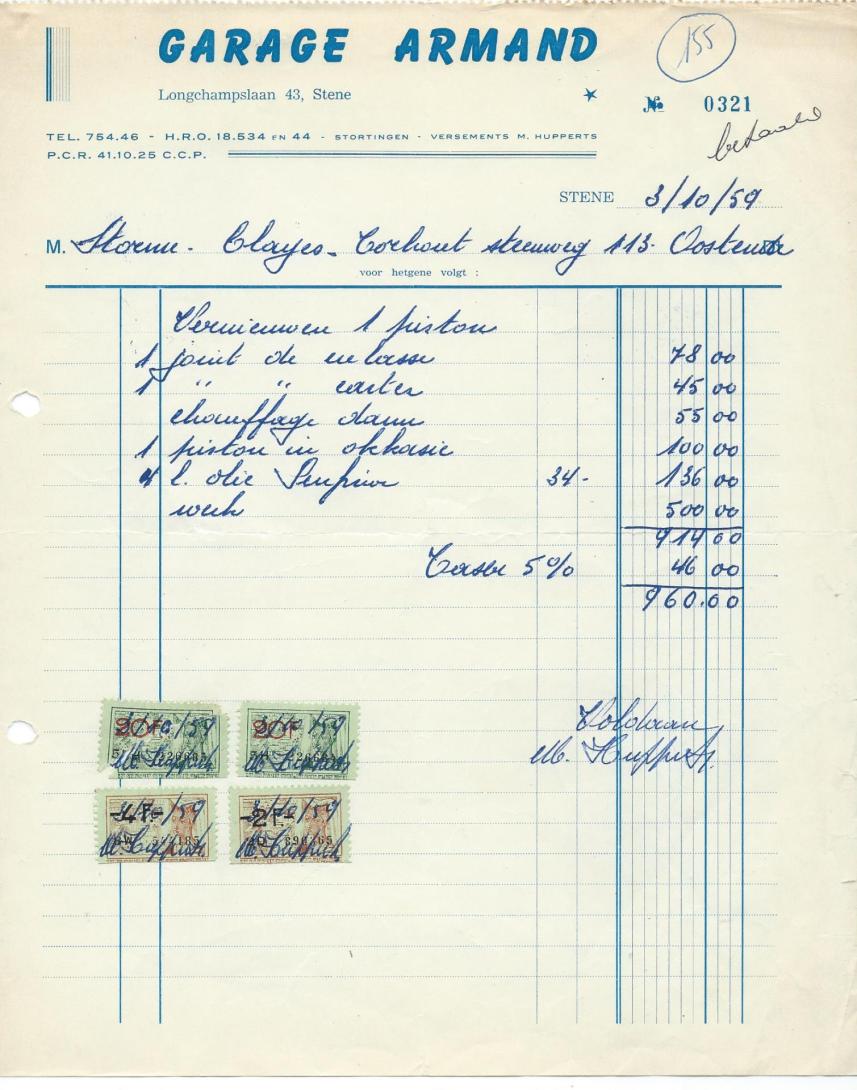 GARAGE ARMAND
155
Longchampslaan 43, Stene
№ 0321
betaald
TEL. 754.46 - H.R.O. 18.534 EN 44 - STORTINGEN - VERSEMENTS M. HUPPERTS
P.C.R. 41.10.25 C.C.P.
STENE 3/10/59
M. Storme - Clayes - Torhout steenweg 113 - Oostende
voor hetgene volgt :
Vernieuwen 1 piston
1 joint de culasse 78 00
1 " " carter 45 00
chauffage dam 55 00
1 piston in okkasie 100 00
4 l. olie 34- 136 00
werk 500 00
914 00
Taxe 5% 46 00
960.00
Voldaan
M. Hupperts.
20F 3/10/59 20F 3/10/59
M. Hupperts M. Hupperts
-4F.- 3/10/59 -2F.- 3/10/59
M. Hupperts M. Hupperts